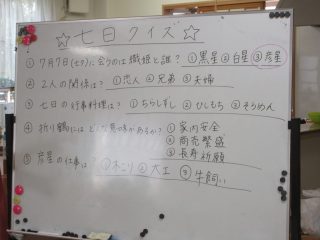 ☆七日クイズ☆
① 7月7日(七夕)に会うのは織姫と誰？ ①黒星 ②白星 ③彦星
② 2人の関係は？ ①恋人 ②兄弟 ③夫婦
③ 七日の行事料理は？ ①ちらしずし ②ひしもち ③そうめん
④ 折り鶴にはどんな意味があるか？ ①家内安全
②商売繁盛
③長寿祈願
⑤ 彦星の仕事は？ ①木こり ②大工 ③牛飼い